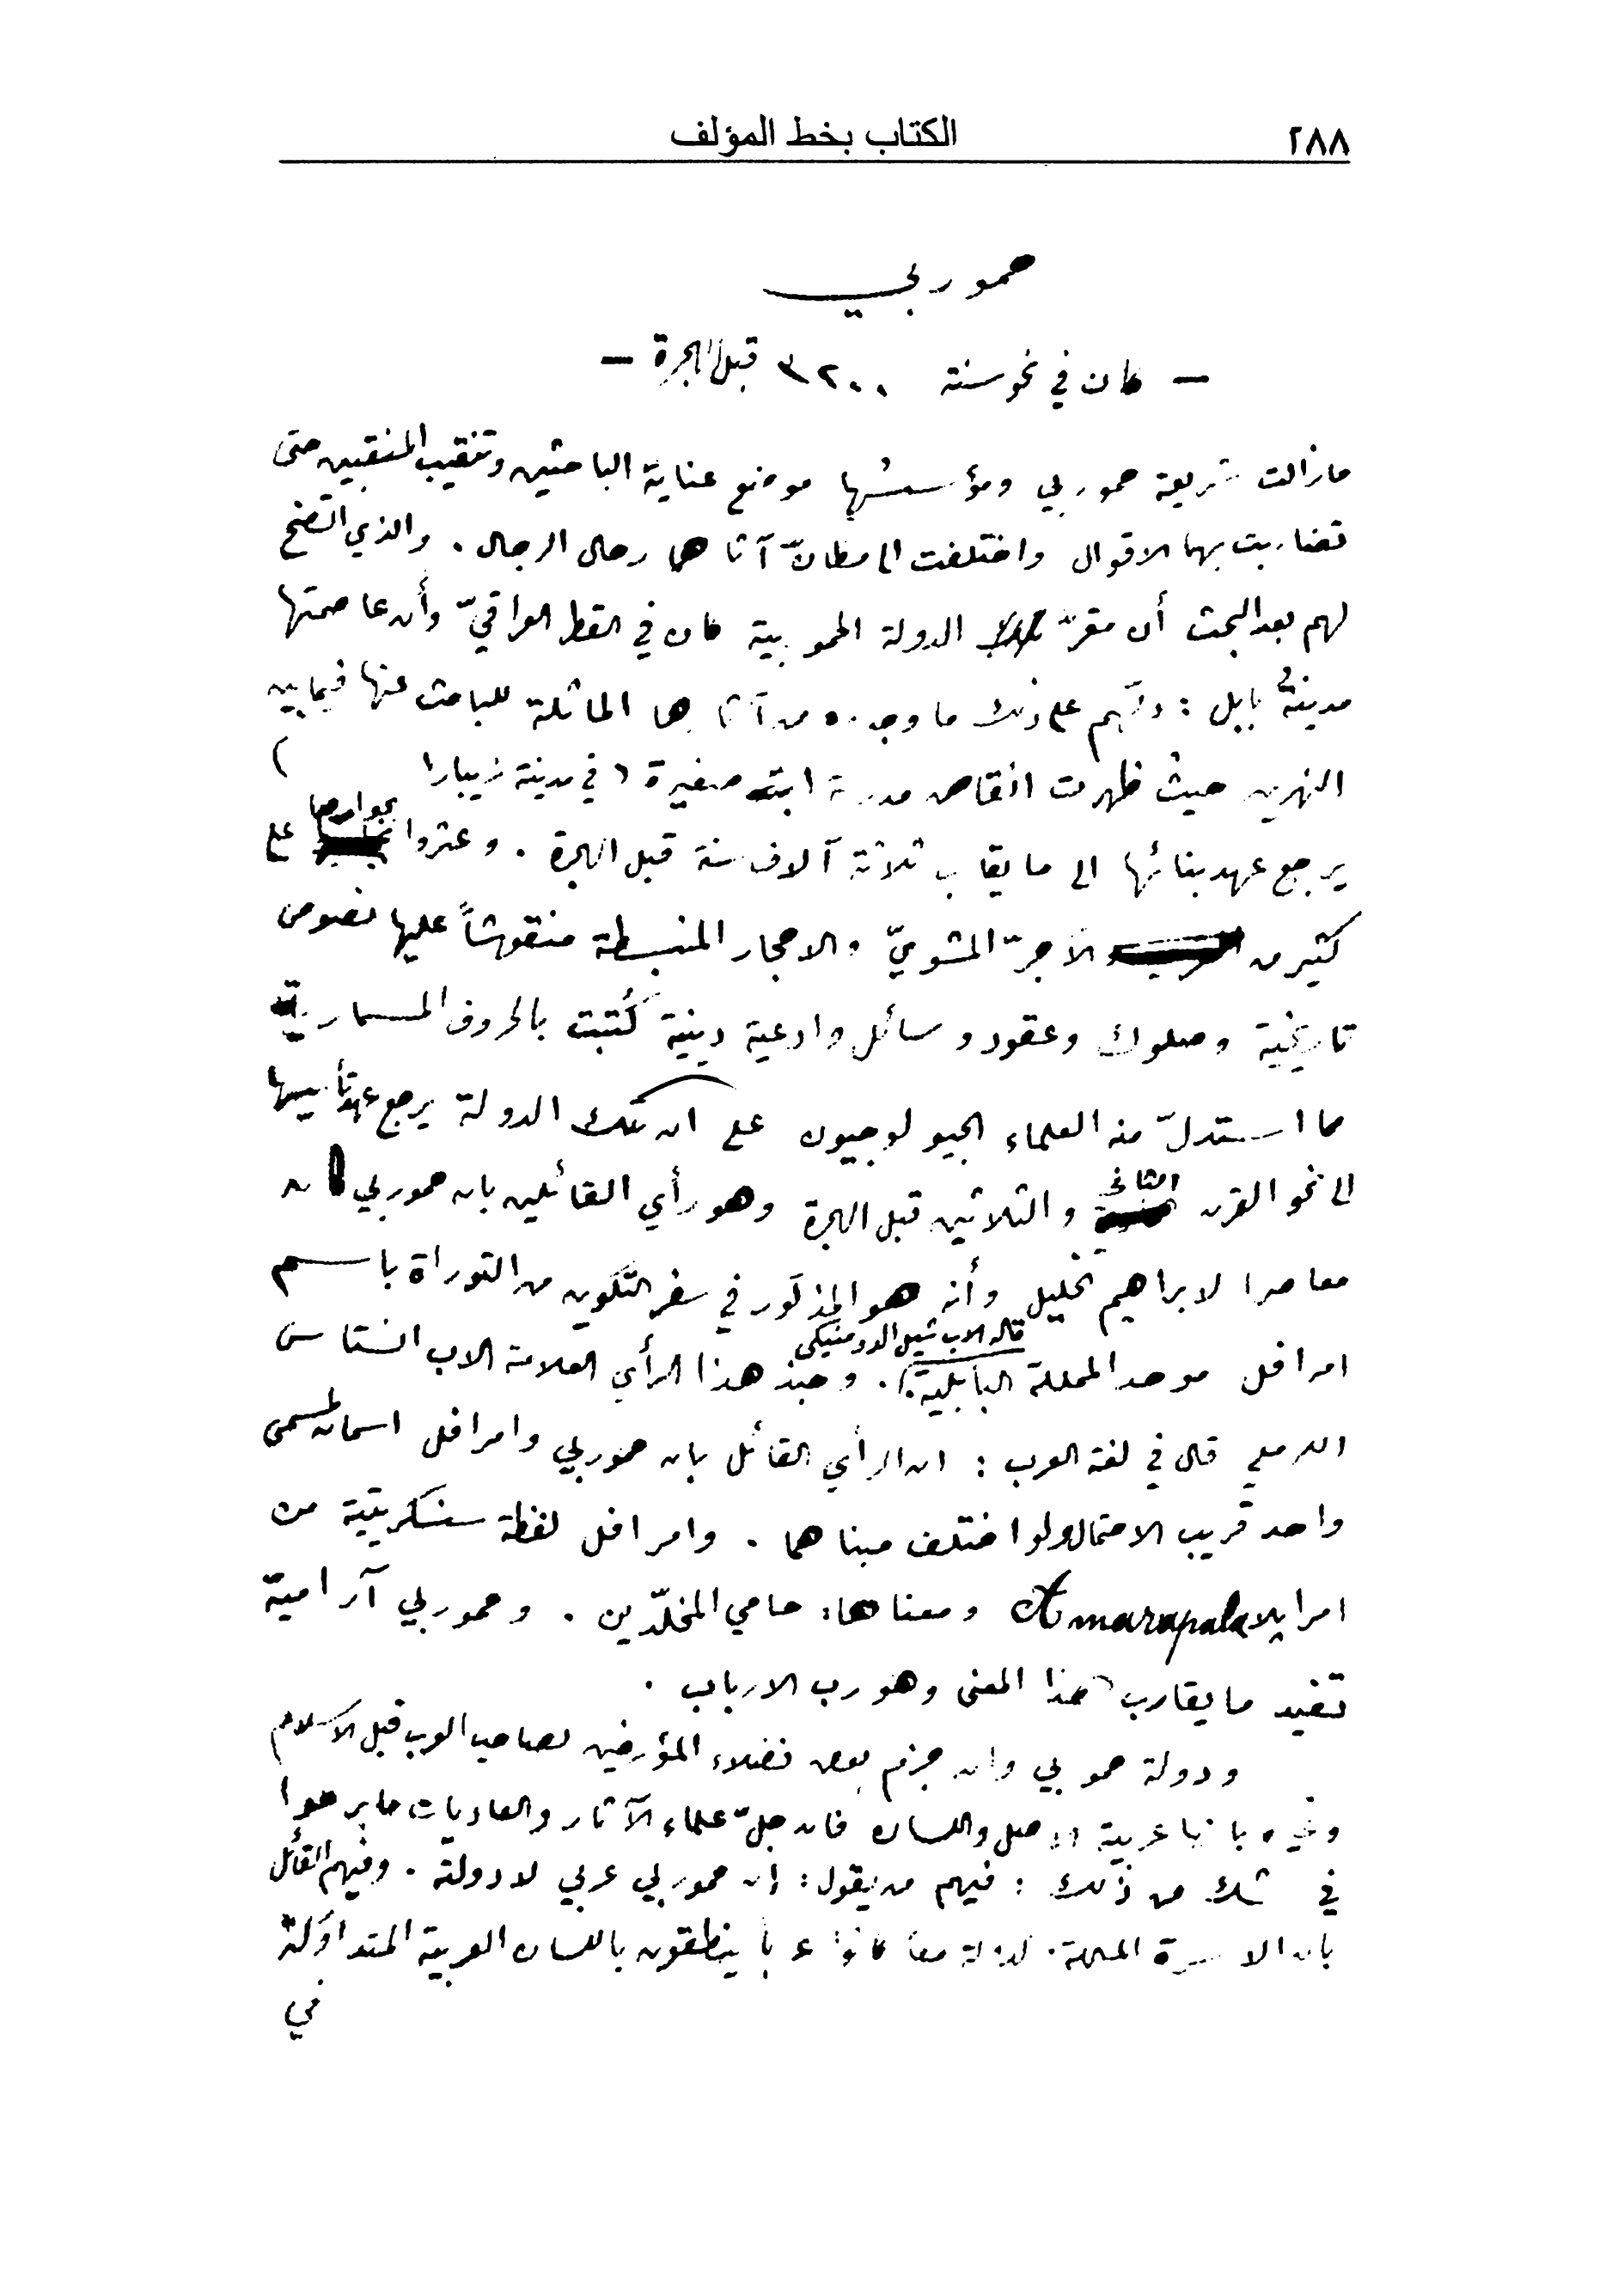 ٢٨٨ الكتاب بخط المؤلف
حموربي
— كان في نحو سنة ٣٢٠٠ قبل الهجرة —
مازالت شريعة حموربي ومؤسسها موضع عناية الباحثين وتنقيب المنقبين حتى
تضاربت بهما الاقوال واختلفت الى مظانّ آثارهما رحال الرجال . والذي اتضح
لهم بعد البحث أن مقرّ الدولة الحموربية كان في القطر العراقيّ وأن عاصمتها
مدينةُ بابل : دلّهم على ذلك ما وجدوه من آثارها الماثلة للباحث عنها فيما بين
النهرين حيث ظهرت انقاض مدرسة ابتدائية صغيرة ( في مدينة زيبارا )
يرجع عهد بنائها الى ما يقارب ثلاثة آلاف سنة قبل الهجرة . وعثروا بجوارها على
كثير من الآجرّ المشويّ والاحجار المنبسطة منقوشاً عليها نصوص
تاريخية وصكوك وعقود ورسائل وادعية دينية كُتبت بالحروف المسمارية
مما استدلّ منه العلماء الجيولوجيون على ان تلك الدولة يرجع عهد تأسيسها
الى نحو القرن الثاني والثلاثين قبل الهجرة وهو رأي القائلين بان حموربي كان
معاصرا لابراهيم الخليل وأنه هو المذكور في سفر التكوين من التوراة باسم
امرافل موحد المملكة البابلية ( قاله الاب شيل الدومنيكي ) . وحبذ هذا الرأي العلامة الاب انستاس
الكرملي قال في لغة العرب : ان الرأي القائل بان حموربي وامرافل اسمان لمسمى
واحد قريب الاحتمال ولو اختلف مبناهما . وامرافل لفظة سنسكريتية من
امراپلا Amarapala ومعناها : حامي المخلّدين . وحموربي آرامية
تفيد ما يقارب هذا المعنى وهو رب الارباب .
ودولة حموربي وان جزم بعض فضلاء المؤرخين كصاحب العرب قبل الاسلام
وغيره بانها عربية الاصل واللسان فان جلّ علماء الآثار والعاديات ما برحوا
في شك من ذلك : فمنهم من يقول : إن حموربي عربي لا دولته . ومنهم القائل
بان الاسرة المالكة والدولة معا كانوا عربا ينطقون باللسان العربية المتداولة
في